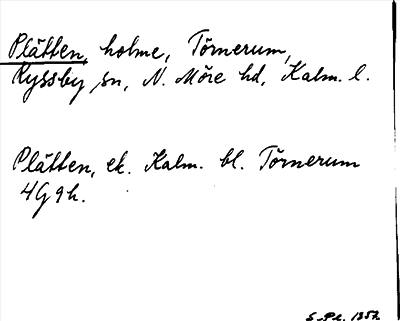 Plätten, holme, Törnerum,
Ryssby sn, N. Möre hd, Kalm. l.
Plätten, ek. Kalm. bl. Törnerum
4G9h.
S. Pl. 1957